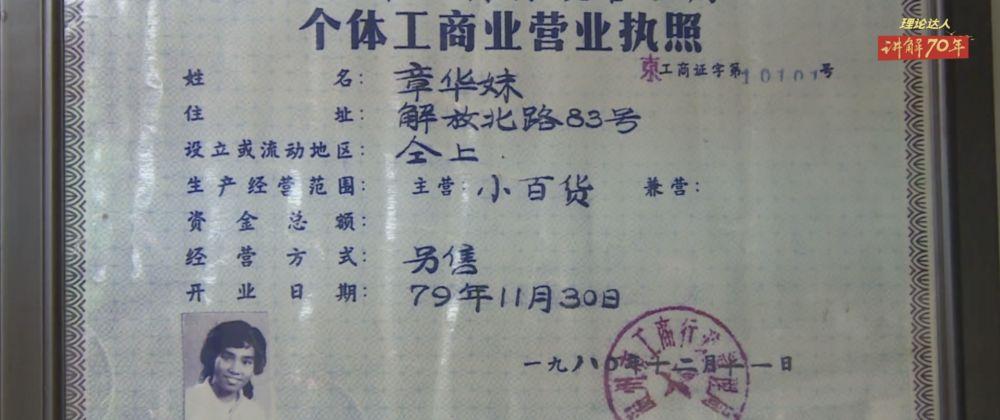 理论达人
讲解70年
个体工商业营业执照
东工商证字第10101号
姓名：章华妹
住址：解放北路83号
设立或流动地区：仝上
生产经营范围：主营：小百货 兼营：
资金总额：
经营方式：另售
开业日期：79年11月30日
一九八〇年十二月十一日